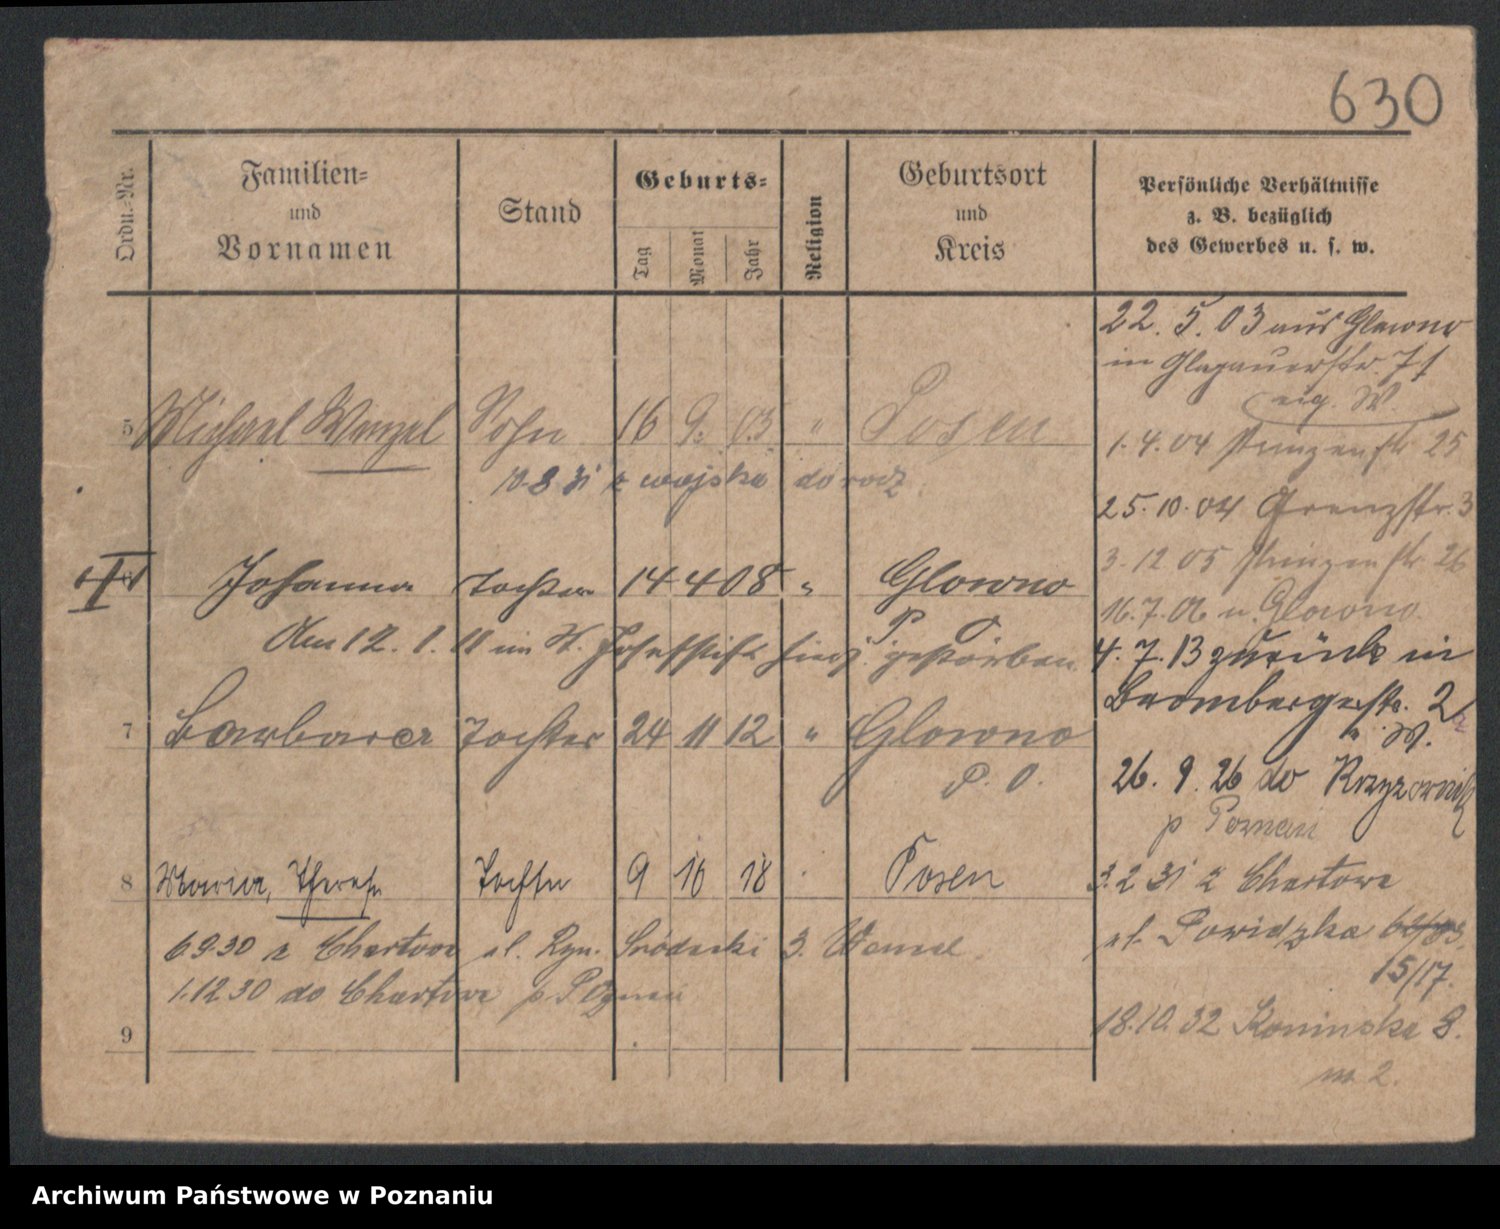 630
Ordn.-Nr.
Familien-
und
Vornamen
Stand
Geburts-
Tag
Monat
Jahr
Religion
Geburtsort
und
Kreis
Persönliche Verhältnisse
z. B. bezüglich
des Gewerbes u. s. w.
22. 5. 03 aus Glowno
in Glogauerstr. 71
eig. W.
5 Michael Wenzel Sohn 16 9. 03. " Posen
1. 4. 04 25
10 8 31 z wojska do rodz
25. 10. 04 Grenzstr. 3
3. 12 05 26
Johanna Tochter 14 4 08 " Glowno
16. 7. 06 n. Glowno
P. O
Am 12. 1. 11 im St. Josefstift hier gestorben.
4. 7. 13 zurück in
Brombergerstr. 2
7 Barbara Tochter 24 11 12 " Glowno
W.
P. O.
26. 9. 26 do
p Poznań
8 Maria, Therese Tochter 9 10 18 Posen
3. 2 31 z Chartowa
6 9. 30 z Chartowa ul. Ryn. Śródecki 3.
ul. Powidzka
15/17.
1. 12 30 do Chartowa p Poznań
18. 10. 32 Konińska 8.
m 2.
9
Archiwum Państwowe w Poznaniu